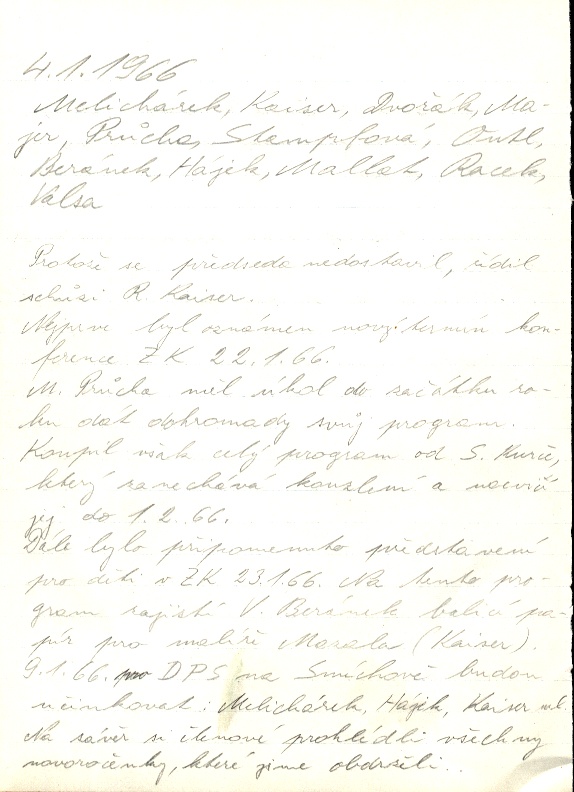 4.1.1966
Melichárek, Kaiser, Dvořák, Ma-
jer, Průcha, Stampfová, Outl,
Beránek, Hájek, Mallat, Racek,
Valsa
Protože se předseda nedostavil, řídil
schůzi R. Kaiser.
Nejprve byl oznámen nový termín kon-
ference ZK 22.1.66.
M. Průcha měl úkol do začátku ro-
ku dát dohromady svůj program.
Koupil však celý program od S.
který zanechává kouzlení a nacvičí
jej do 1.2.66.
Dále bylo připomenuto představení
pro děti v ZK 23.1.66. Na tento pro-
gram zajistí V. Beránek balicí pa-
pír pro malíře Mazala (Kaiser).
9.1.66. pro DPS na Smíchově budou
účinkovat: Melichárek, Hájek, Kaiser
Na závěr si členové prohlédli všechny
novoročenky, které jsme obdrželi.